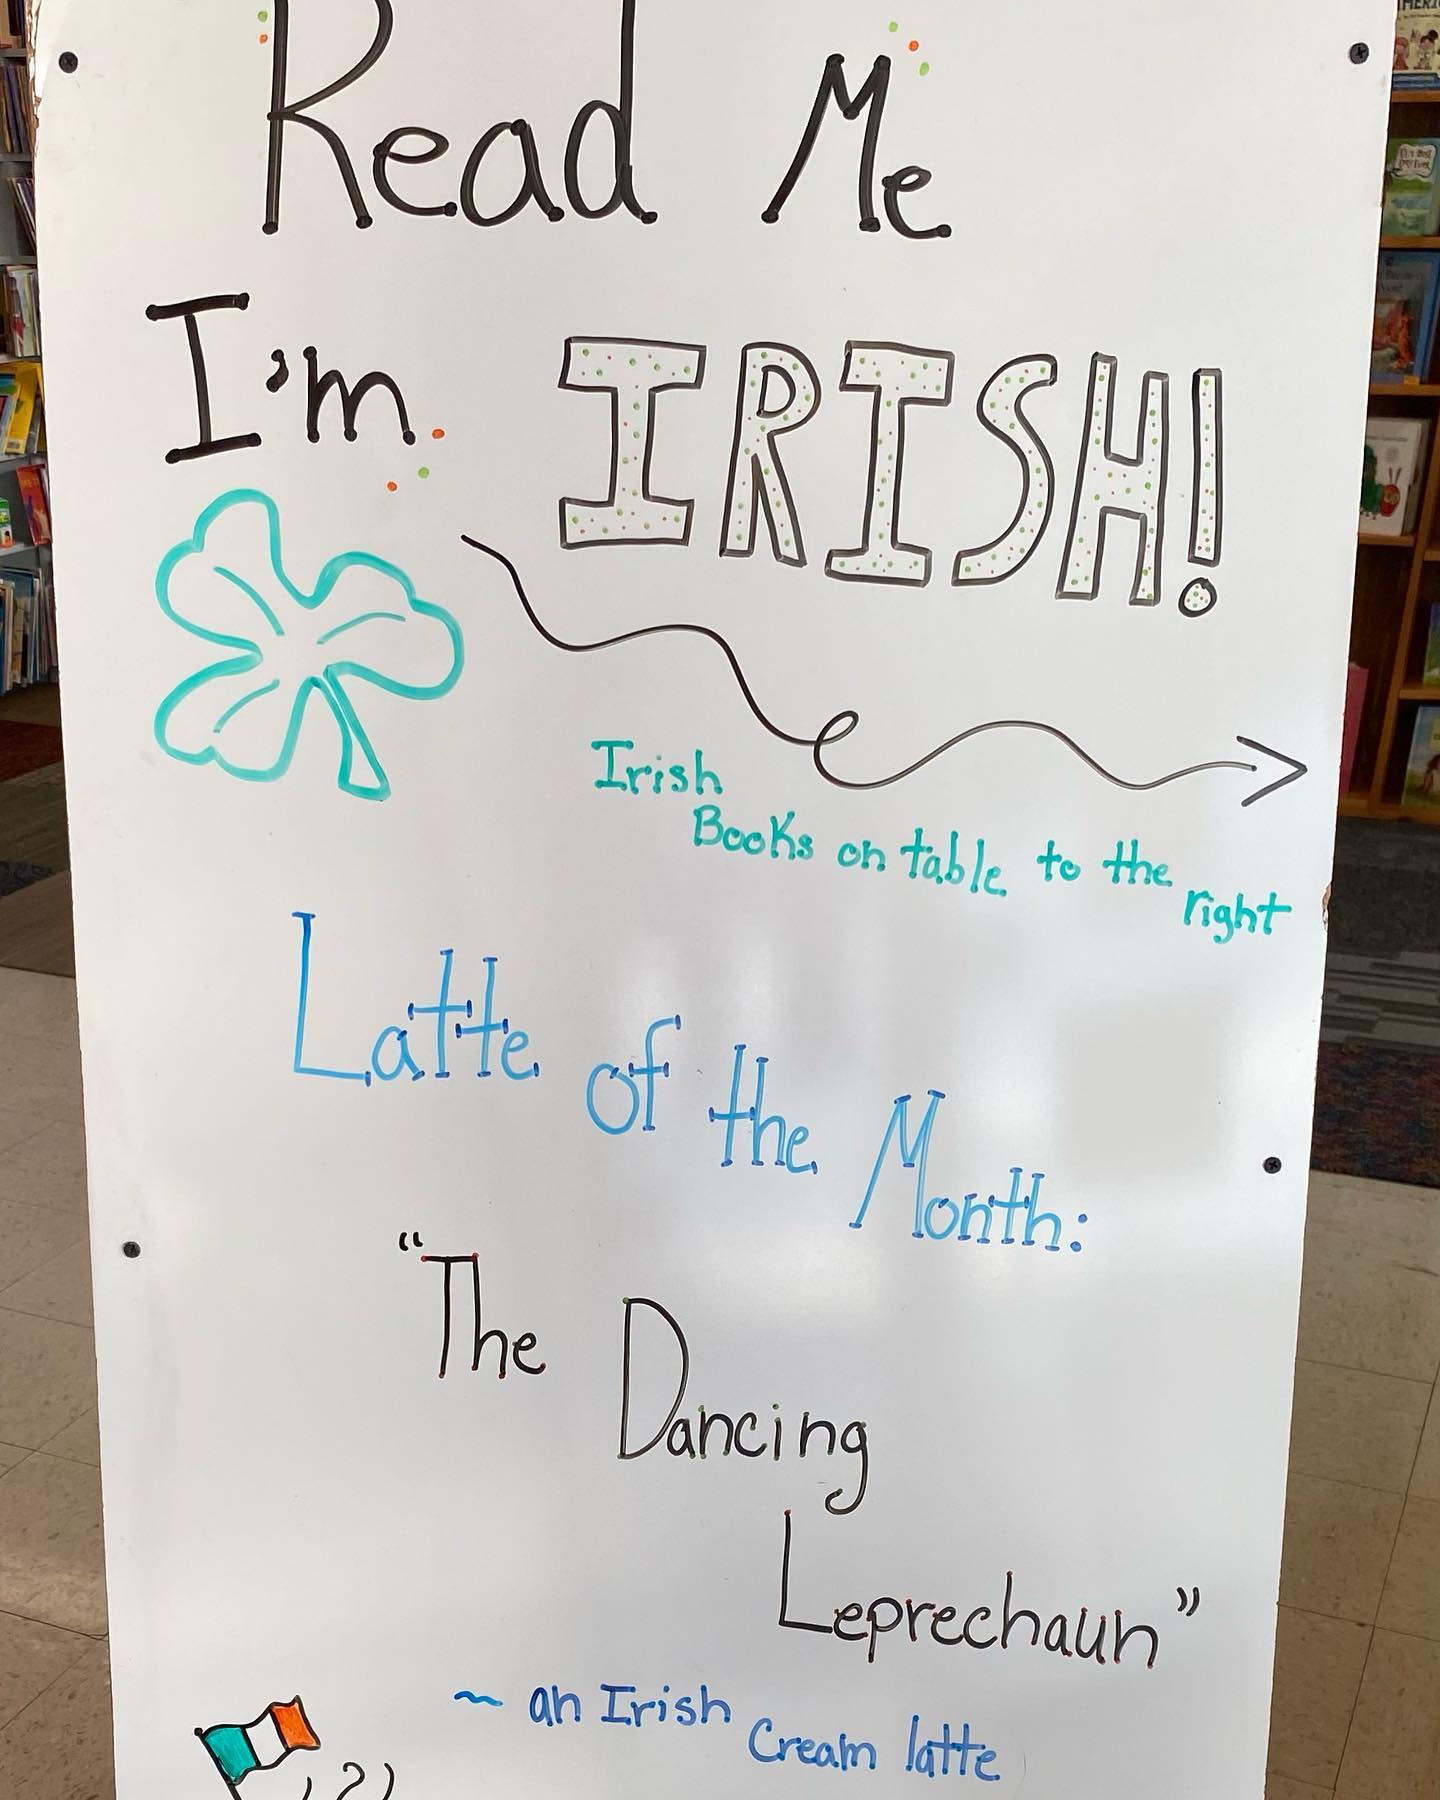 Read Me
I'm IRISH!
Irish
Books on table to the
right
Latte of the Month:
"The Dancing
Leprechaun"
~ an Irish
Cream latte